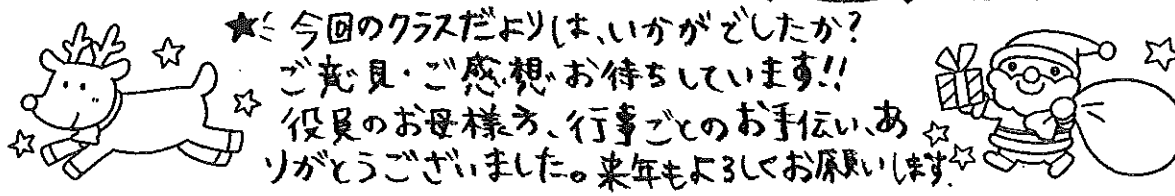 今回のクラスだよりは、いかがでしたか?
ご意見・ご感想お待ちしています!!
役員のお母様方、行事ごとのお手伝い、あ
りがとうございました。来年もよろしくお願いします。